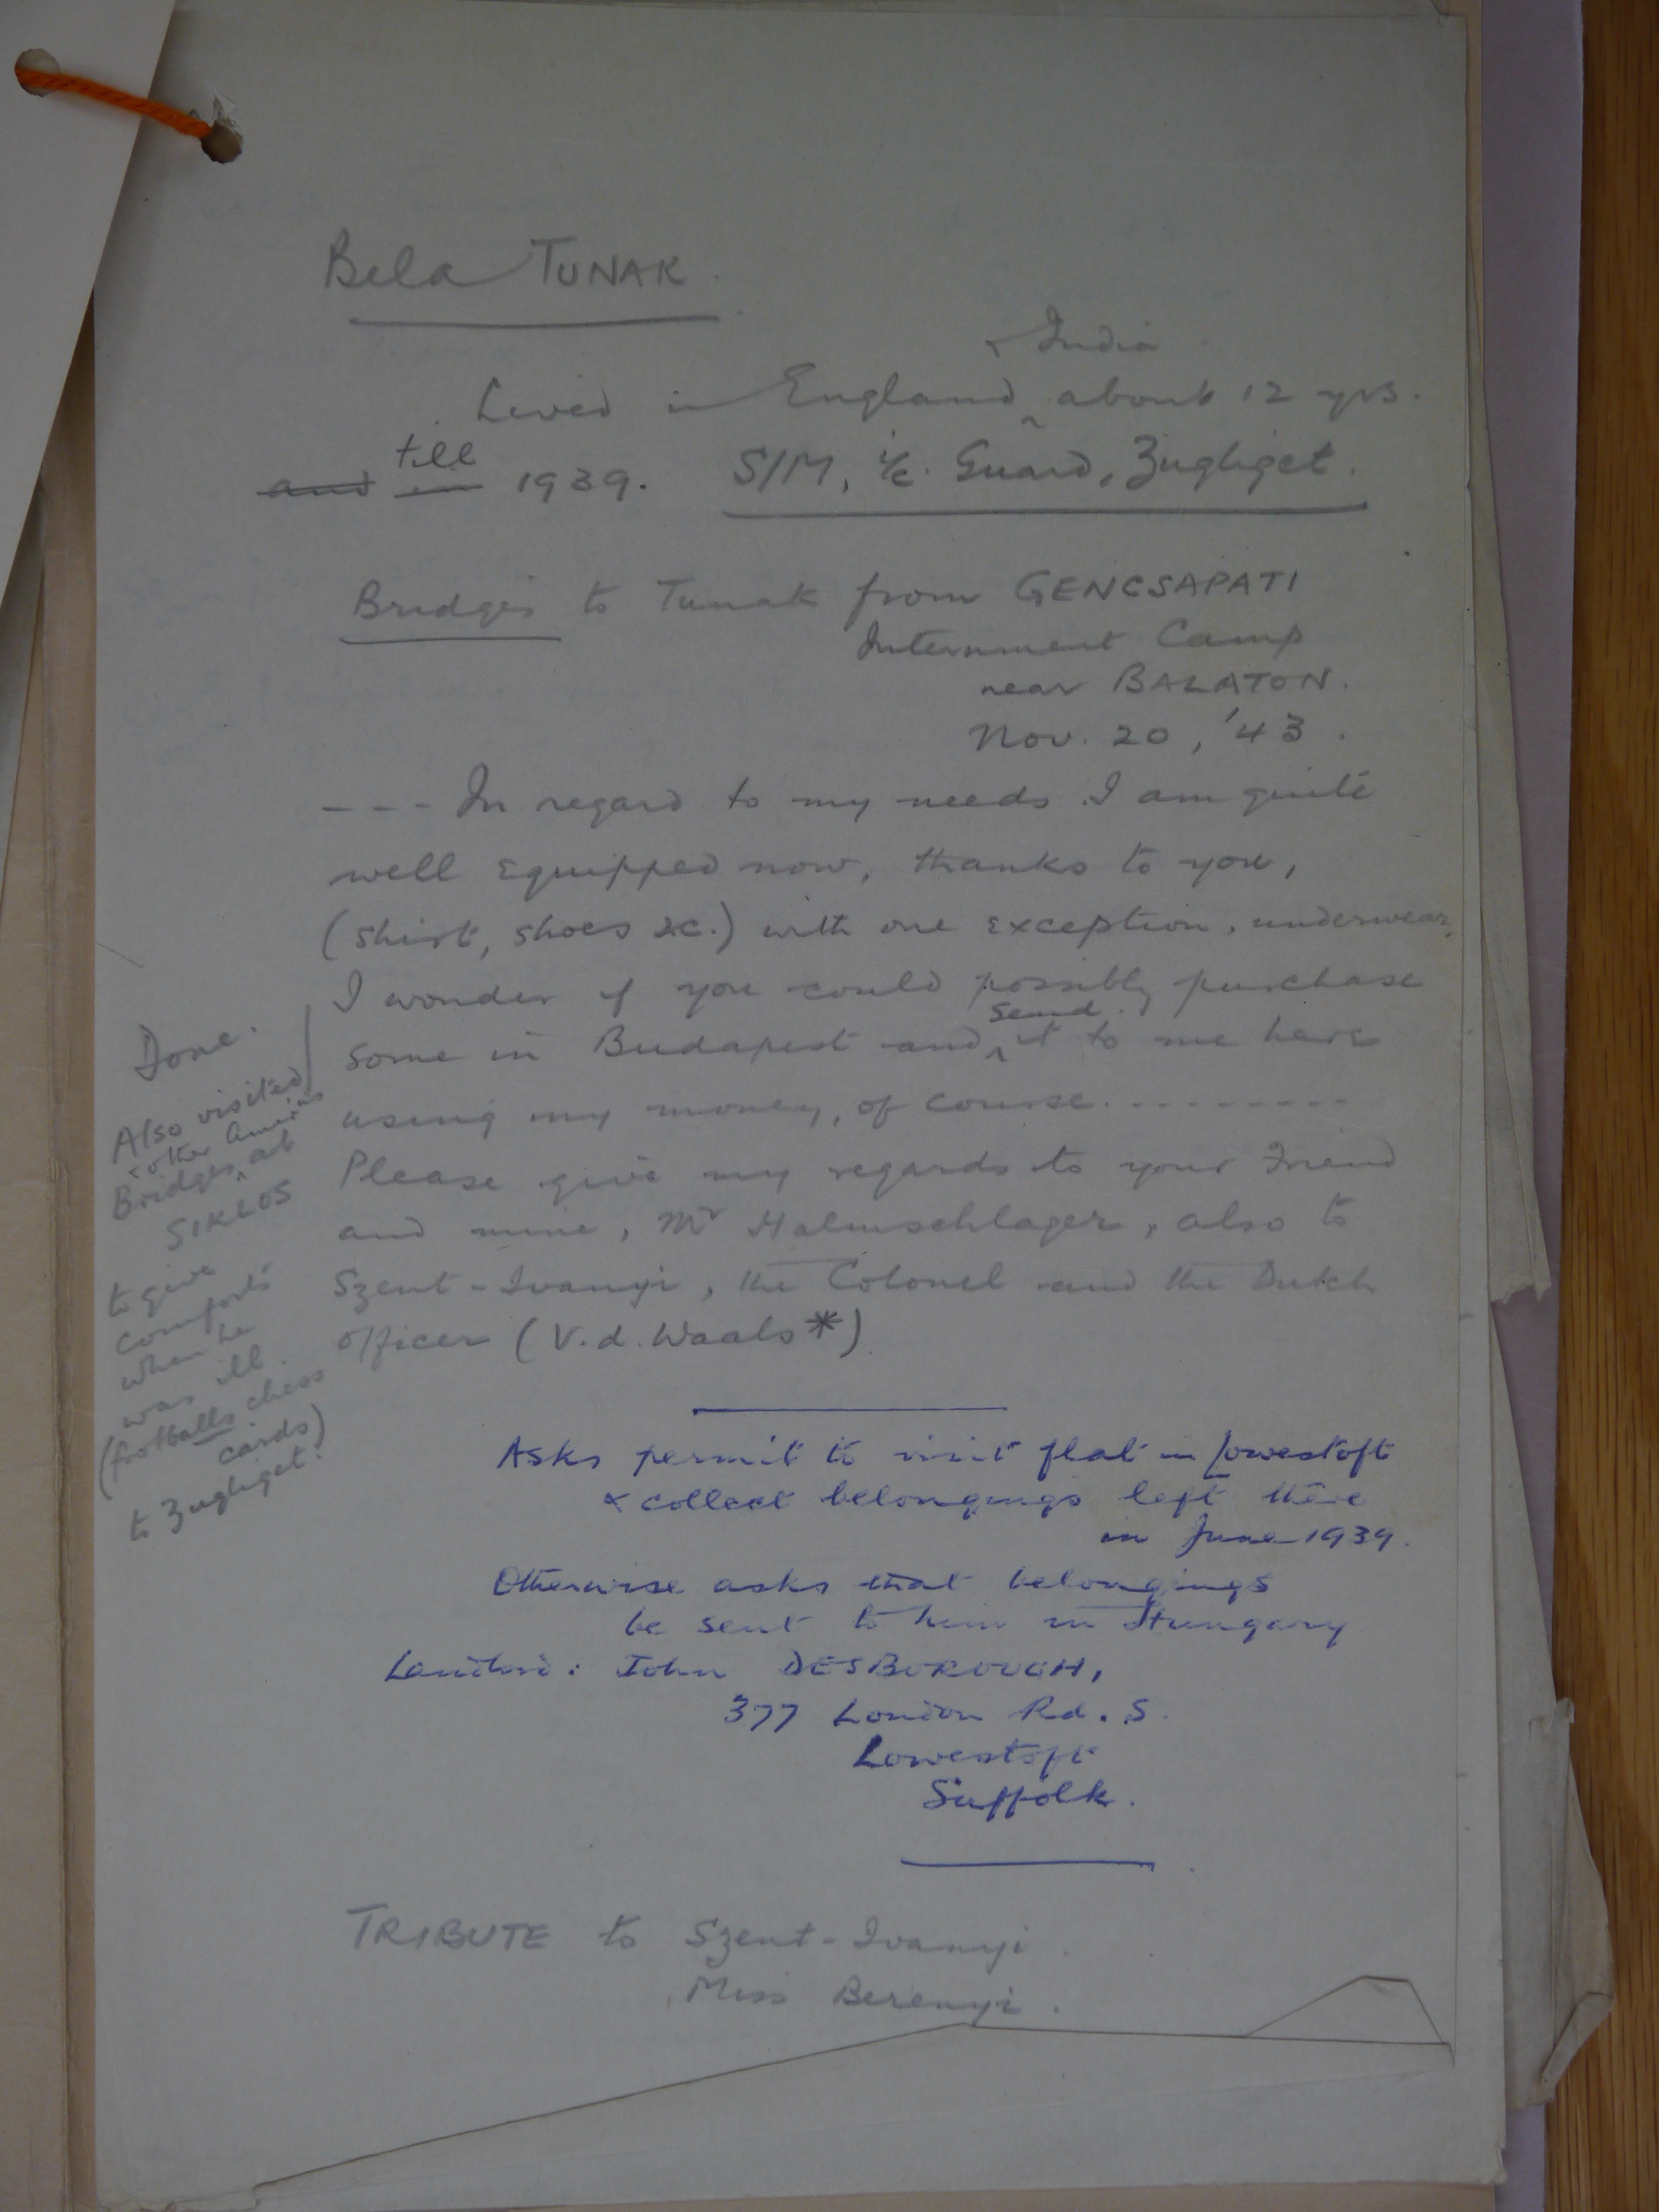 Bela TUNAK
& India
Lived in England about 12 yrs.
till
and in 1939. S/M, i/c. Guard, Zugliget.
Bridges to Tunak from GENCSAPATI
Internment Camp
near BALATON.
Nov. 20, '43.
--- In regard to my needs I am quite
well equipped now, thanks to you,
(shirt, shoes &c.) with one exception, underwear,
I wonder if you could possibly purchase
send
some in Budapest and it to me here
using my money, of course. --------
Please give my regards to your friend
and mine, Mr Halmschlager, also to
Szent-Ivanyi, the Colonel and the Dutch
officer (V.d. Waals*)
Done.
Also visited
& other Amer'ns
Bridges at
SIKLOS
to give
comforts
when he
was ill.
(footballs chess
cards)
to Zugliget.
Asks permit to visit flat in Lowestoft
& collect belongings left there
in June 1939.
Otherwise asks that belongings
be sent to him in Hungary
Landlord: John DESBOROUGH,
377 London Rd. S.
Lowestoft
Suffolk.
TRIBUTE to Szent-Ivanyi.
Miss Berenyi.